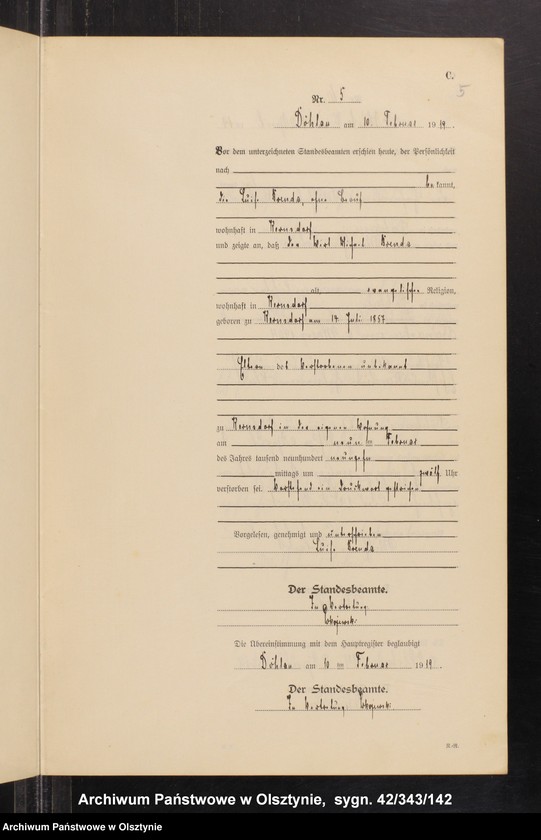 C.
5
Nr. 5
Döhlau am 10. Februar 1919.
Vor dem unterzeichneten Standesbeamten erschien heute, der Persönlichkeit
nach
bekannt,
die Luise , ohne Beruf
wohnhaft in Wernsdorf
und zeigte an, daß der Wirt
alt, evangelischer Religion,
wohnhaft in Wernsdorf
geboren zu Wernsdorf am 14. Juli 1857
Eltern des Verstorbenen unbekannt
zu Wernsdorf in der eigenen Wohnung
am neun ten Februar
des Jahres tausend neunhundert neunzehn
mittags um zwölf Uhr
verstorben sei. Vorstehend ein Druckwort gestrichen
Vorgelesen, genehmigt und unterschrieben
Luise
Der Standesbeamte.
In Vertretung
Die Übereinstimmung mit dem Hauptregister beglaubigt
Döhlau am 10 ten Februar 1919.
Der Standesbeamte.
In Vertretung
K.-R.
Archiwum Państwowe w Olsztynie, sygn. 42/343/142
Archiwum Państwowe w Olsztynie